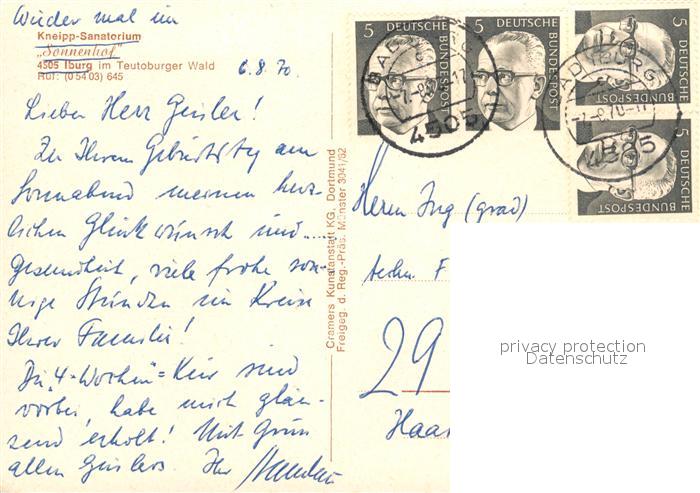 Wieder mal im
Kneipp-Sanatorium
„Sonnenhof"
4505 Iburg im Teutoburger Wald
Ruf: (0 54 03) 645
6.8.70.
Lieber Herr Geisler!
Zu Ihrem Geburtstag am
Sonnabend meinen herz-
lichen Glückwunsch und
Gesundheit, viele frohe son-
nige Stunden im Kreise
Ihrer Familie!
Die „4-Wochen"-Kur sind
vorbei, habe mich glän-
zend erholt! Mit Gruß
allen Geislers. Ihr
Cramers Kunstanstalt KG, Dortmund
Freigeg. d. Reg.-Präs. Münster 3041/62
5 DEUTSCHE BUNDESPOST
5 DEUTSCHE BUNDESPOST
5 DEUTSCHE BUNDESPOST
5 DEUTSCHE BUNDESPOST
BAD IBURG
4505
BAD IBURG
-7.-8.70-17
4505
Herrn Ing (grad)
techn. F
29
Haa
privacy protection
Datenschutz